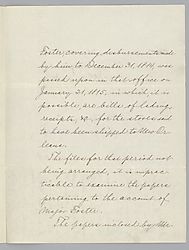 Foster covering disbursements made
by him to December 31, 1814, was
passed upon in that office on
January 31, 1815, in which it is
possible, are bills of lading,
receipts, &c., for the stores said
to have been shipped to New Or-
leans.
The files for this period not
being arranged, it is imprac-
ticable to examine the papers
pertaining to the account of
Major Foster.
The papers inclosed by Mr.